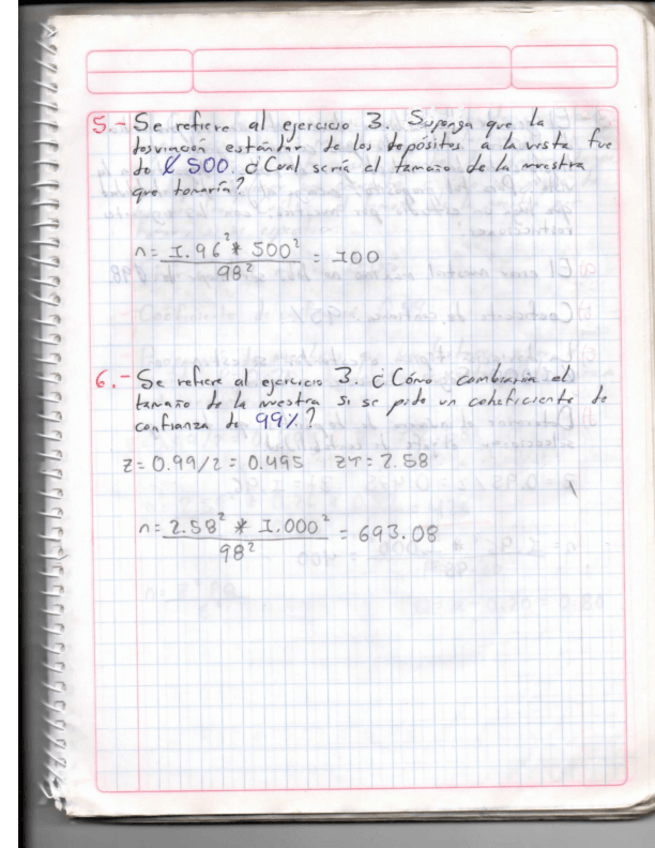 5.- Se refiere al ejercicio 3. Suponga que la
desviación estándar de los depósitos a la vista fue
de ₡ 500. ¿Cual sería el tamaño de la muestra
que tomaría?
n= 1.96² * 500² / 98² = 100
6.- Se refiere al ejercicio 3. ¿Cómo cambiaría el
tamaño de la muestra si se pide un coheficiente de
confianza de 99%?
Z= 0.99/2 = 0.495 ZT= 2.58
n= 2.58² * 1.000² / 98² = 693.08